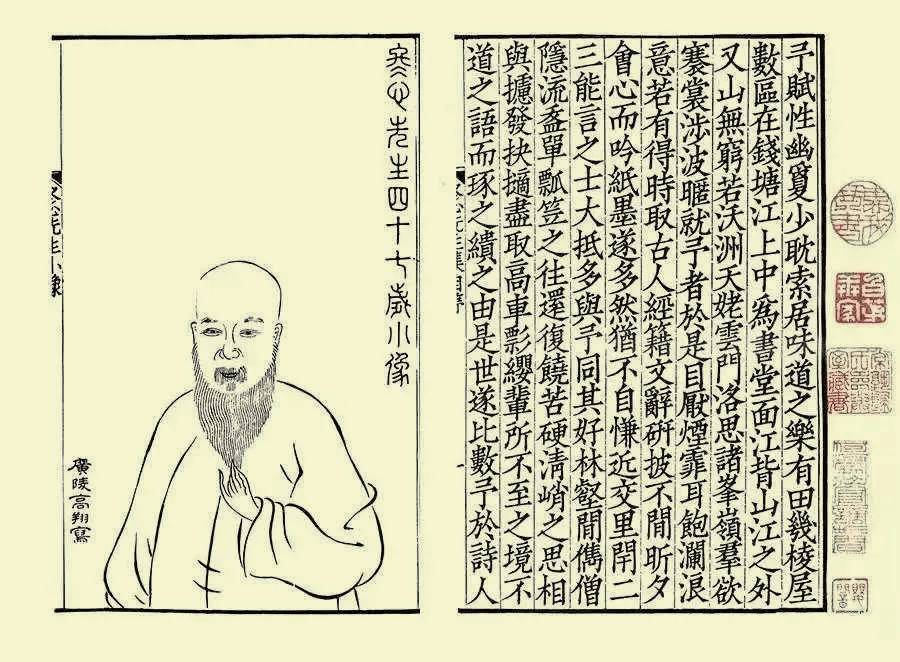 予賦性幽敻少耽索居味道之樂有田幾棱屋
數區在錢塘江上中爲書堂面江背山江之外
又山無窮若沃洲天姥雲門洛思諸峯嶺羣欲
褰裳涉波暱就予者於是目厭煙霏耳飽瀾浪
意若有得時取古人經籍文辭研披不閒昕夕
會心而吟紙墨遂多然猶不自慊近交里閈二
三能言之士大抵多與予同其好林壑閒儁僧
隱流盋單瓢笠之往還復饒苦硬清峭之思相
與攄發抉擿盡取高車彯纓輩所不至之境不
道之語而琢之繢之由是世遂比數予於詩人
冬心先生四十七歲小像
廣陵高翔寫